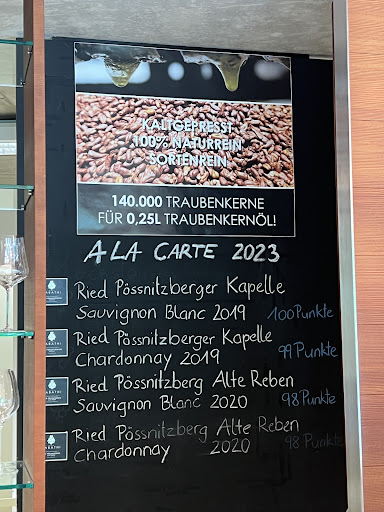 KALTGEPRESST
100% NATURREIN
SORTENREIN
140.000 TRAUBENKERNE
FÜR 0,25L TRAUBENKERNÖL!
A LA CARTE 2023
Ried Pössnitzberger Kapelle
Sauvignon Blanc 2019 100 Punkte
Ried Pössnitzberger Kapelle
Chardonnay 2019 99 Punkte
Ried Pössnitzberg Alte Reben
Sauvignon Blanc 2020 98 Punkte
Ried Pössnitzberg Alte Reben
Chardonnay 2020 98 Punkte